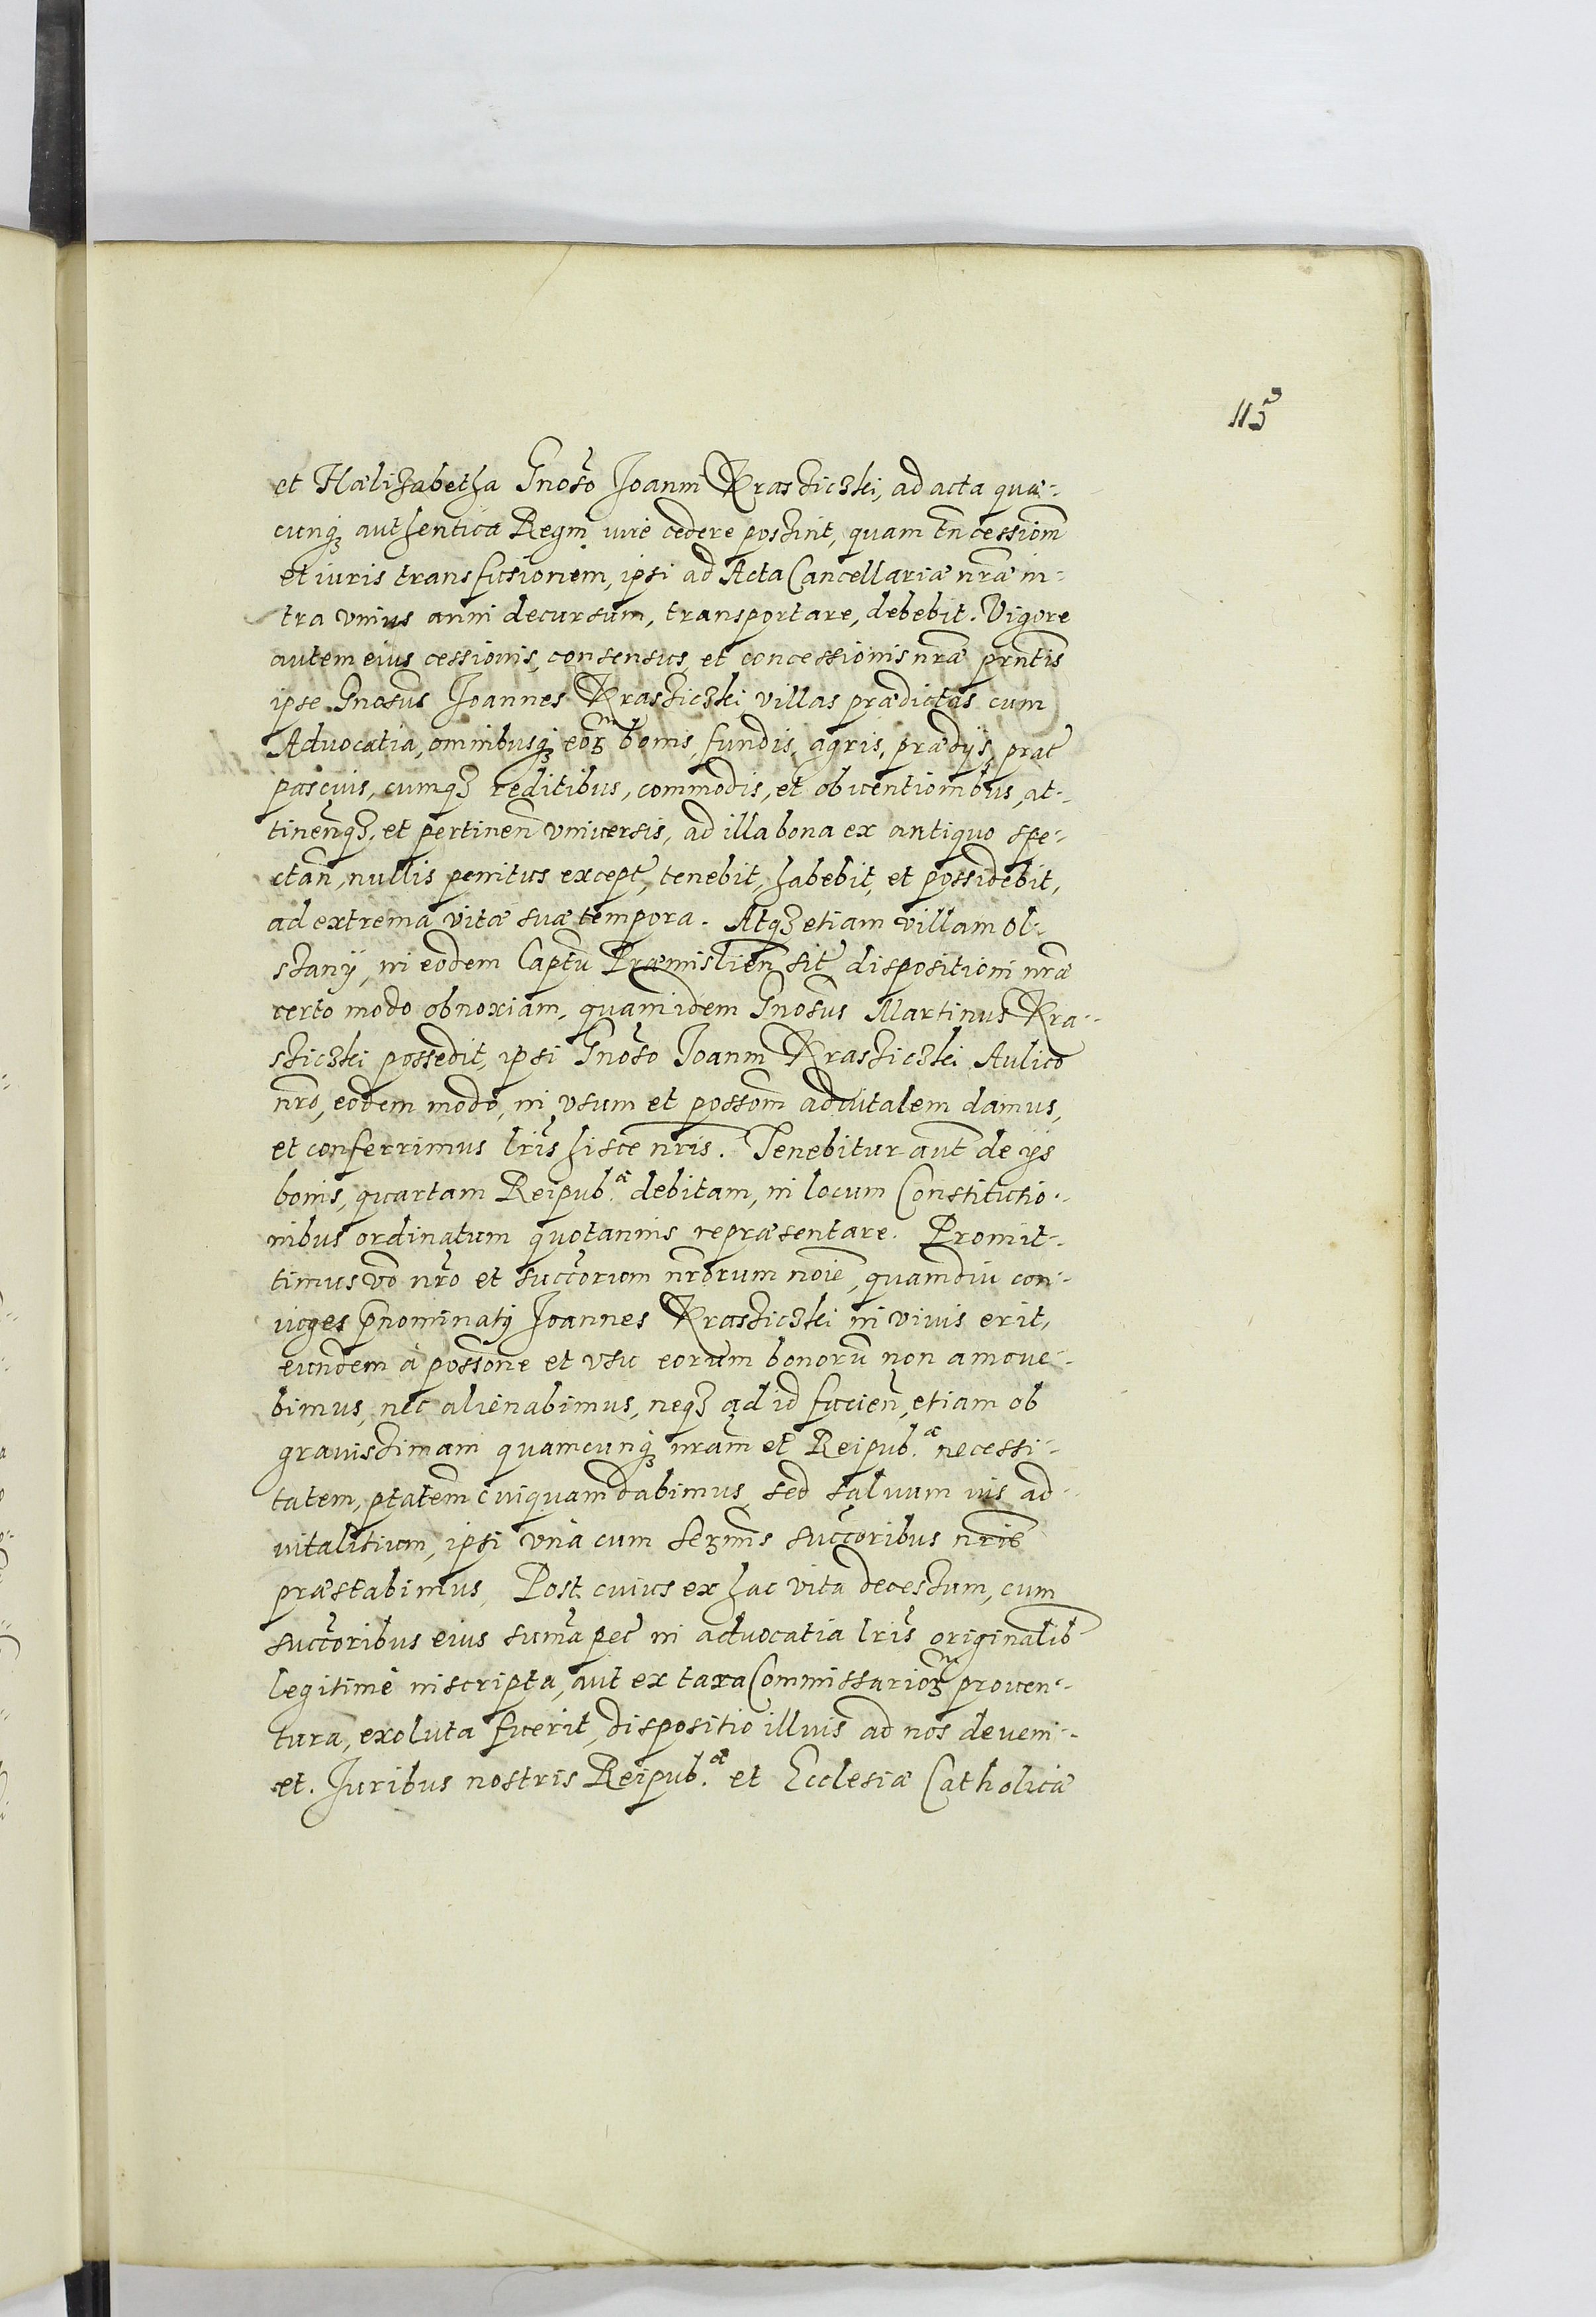 113
et Hælizabetha Gnoso Joanni Krasiczki, ad acta quæ-
cunq́ꝫ authentica Regni iure cedere possint, quam tn cessionē
et iuris transfusionem, ipsi ad Acta Cancellariæ nræ in-
tra vnius anni decursum, transportare, debebit. Vigore
autem eius cessionis, consensus, et concessionis nræ prntis
ipse Gnosus Joannes Krasiczki villas prædictas cum
Advocatia, omnibusq́ꝫ eorꝫ bonis, fundis, agris, prædijs, prat
pascuis, cumqꝫ reditibus, commodis, et obuentionibus, at-
tinenqꝫ, et pertinen vniuersis, ad illa bona ex antiquo spe-
ctan, nullis penitus except, tenebit, habebit, et possidebit,
ad extrema vitæ suæ tempora. Atqꝫ etiam villam Ol-
szany, in eodem Captu Præmislien sit dispositioni nræ
certo modo obnoxiam, quam idem Gnosus Martinus Kra-
siczki possedit, ipsi Gnoso Joanni Krasiczki Aulico
nro, eodem modo, in vsum et possom aduitalem damus,
et conferrimus lris hisce nris. Tenebitur aut de ijs
bonis, quartam Reipub.æ debitam, in locum Constitutio-
nibus ordinatum quotannis repræsentare. Promit-
timus vō nro et succorum nrorum noie, quamdiu con-
iuges pnominaty Joannes Krasiczki in viuis erit,
eundem à possone et vsu eorum bonoru non amoue-
bimus, nec alienabimus, neqꝫ ad id facien, etiam ob
grauissimam quamcunq́ꝫ nram et Reipub.æ necessi-
tatem, ptatem cuiquam dabimus, sed saluum ius ad-
uitalitium, ipsi vnà cum Serꝫmis succoribus nris
præstabimus. Post cuius ex hac vita decessum, cum
succoribus eius suma pec in aduocatia lris originalib
legitimè inscripta, aut ex taxa Commissariorꝫ prouen-
tura, exoluta fuerit, dispositio illius ad nos deueni-
et. Juribus nostris Reipub.æ et Ecclesiæ Catholicæ